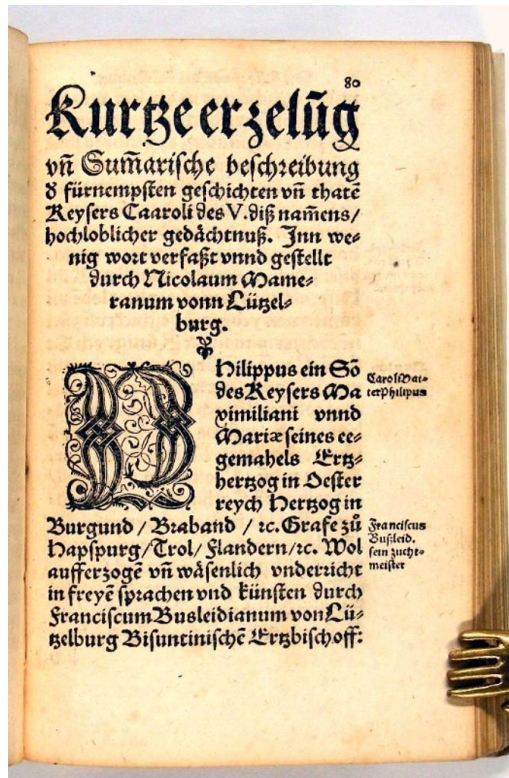 80
Kurtze erzelūg
vñ Sum̄arische beschreibung
ð fürnempsten geschichten vñ thatē
Keysers Caaroli des V. diß nam̄ens/
hochloblicher gedächtnuß. Inn we⸗
nig wort verfaßt vnnd gestellt
durch Nicolaum Mame⸗
ranum vonn Lützel⸗
burg.
Philippus ein Sō
des Keysers Ma
ximiliani vnnd
Mariæ seines ee⸗
gemahels Ertz⸗
hertzog in Oester
reych Hertzog in
Burgund / Braband / ꝛc. Grafe zů
Hapspurg/Trol/Flandern/ꝛc. Wol
aufferzogē vñ wäsenlich vnderricht
in freyē sprachen vnd künsten durch
Franciscum Busleidianum von Lü⸗
tzelburg Bisuntinischē Ertzbischoff:
Caroli Vat⸗
ter Philipus
Franciscus
Bußleid.
sein zucht⸗
meister